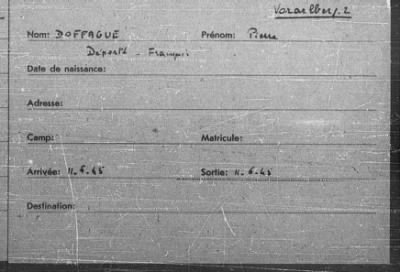 Vorarlberg. 2
Nom: DOFFAGUE Prénom: Pierre
Déporté - Français
Date de naissance:
Adresse:
Camp: Matricule:
Arrivée: 11.6.45 Sortie: 11.6.45
Destination: